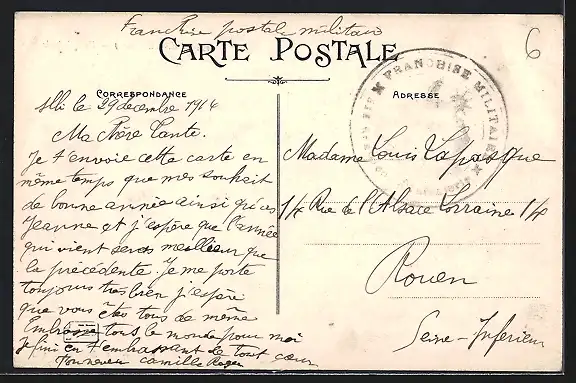 Franchise postale militaire
CARTE POSTALE
6
CORRESPONDANCE
ADRESSE
FRANCHISE MILITAIRE
le 29 decembre 1914
Ma Chère Tante.
Je t'envoie cette carte en
même temps que mes souhait
de bonne année ainsi qu'à
Jeanne et j'espère que l'année
qui vient sera meilleur que
la précédente. Je me porte
toujours tres bien j'espère
que vous êtes tous de même
Embrasse tous le monde pour moi
Je fini en t'embrassant de tout cœur
camille Roger
Madame Louis
14 Rue de l'Alsace Lorraine 14
Rouen
Seine-Inferieur